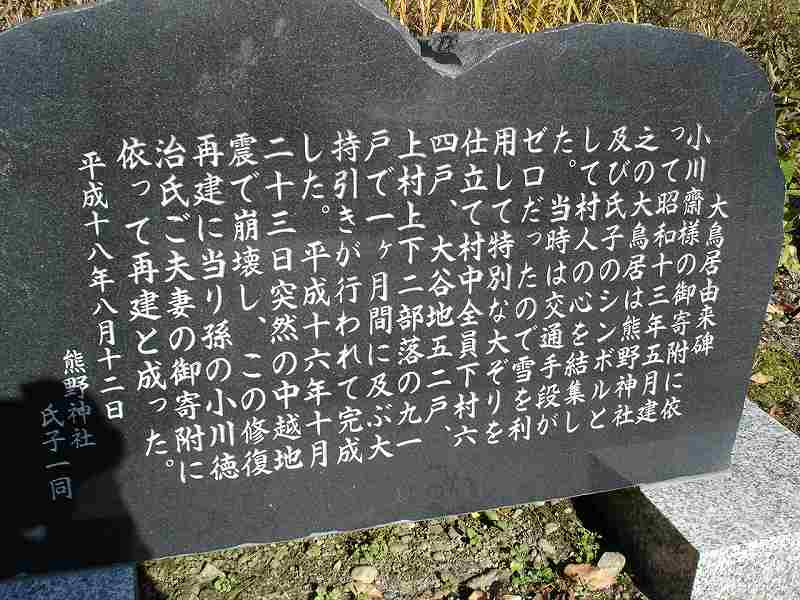 大鳥居由来碑
小川齋様の御寄附に依
って昭和十三年五月建
之の大鳥居は熊野神社
及び氏子のシンボルと
して村人の心を結集し
た。当時は交通手段が
ゼロだったので雪を利
用して特別な大ぞりを
仕立て村中全員下村六
四戸、大谷地五二戸、
上村上下二部落の九一
戸で一ヶ月間に及ぶ大
持引きが行われて完成
した。平成十六年十月
二十三日突然の中越地
震で崩壊し、この修復
再建に当り孫の小川徳
治氏ご夫妻の御寄附に
依って再建と成った。
平成十八年八月十二日
熊野神社
氏子一同